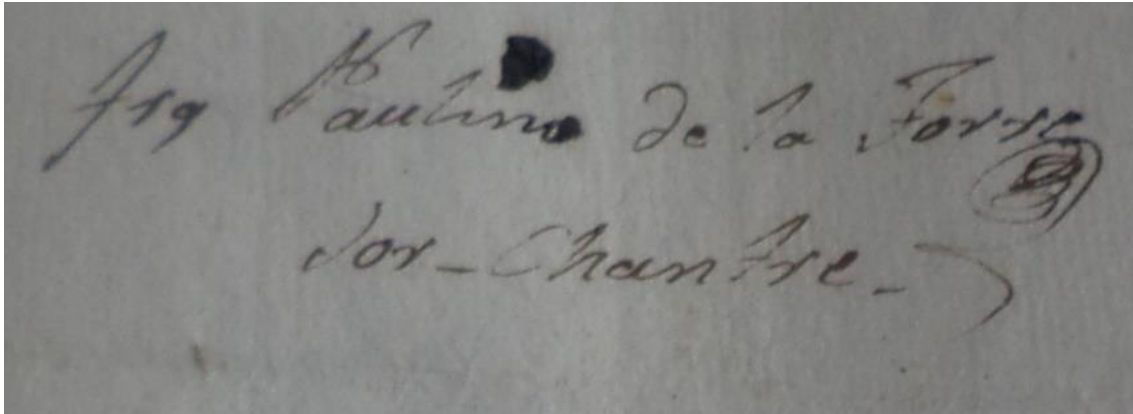 fr9 Paulino de la Torre
Sor-Chantre-